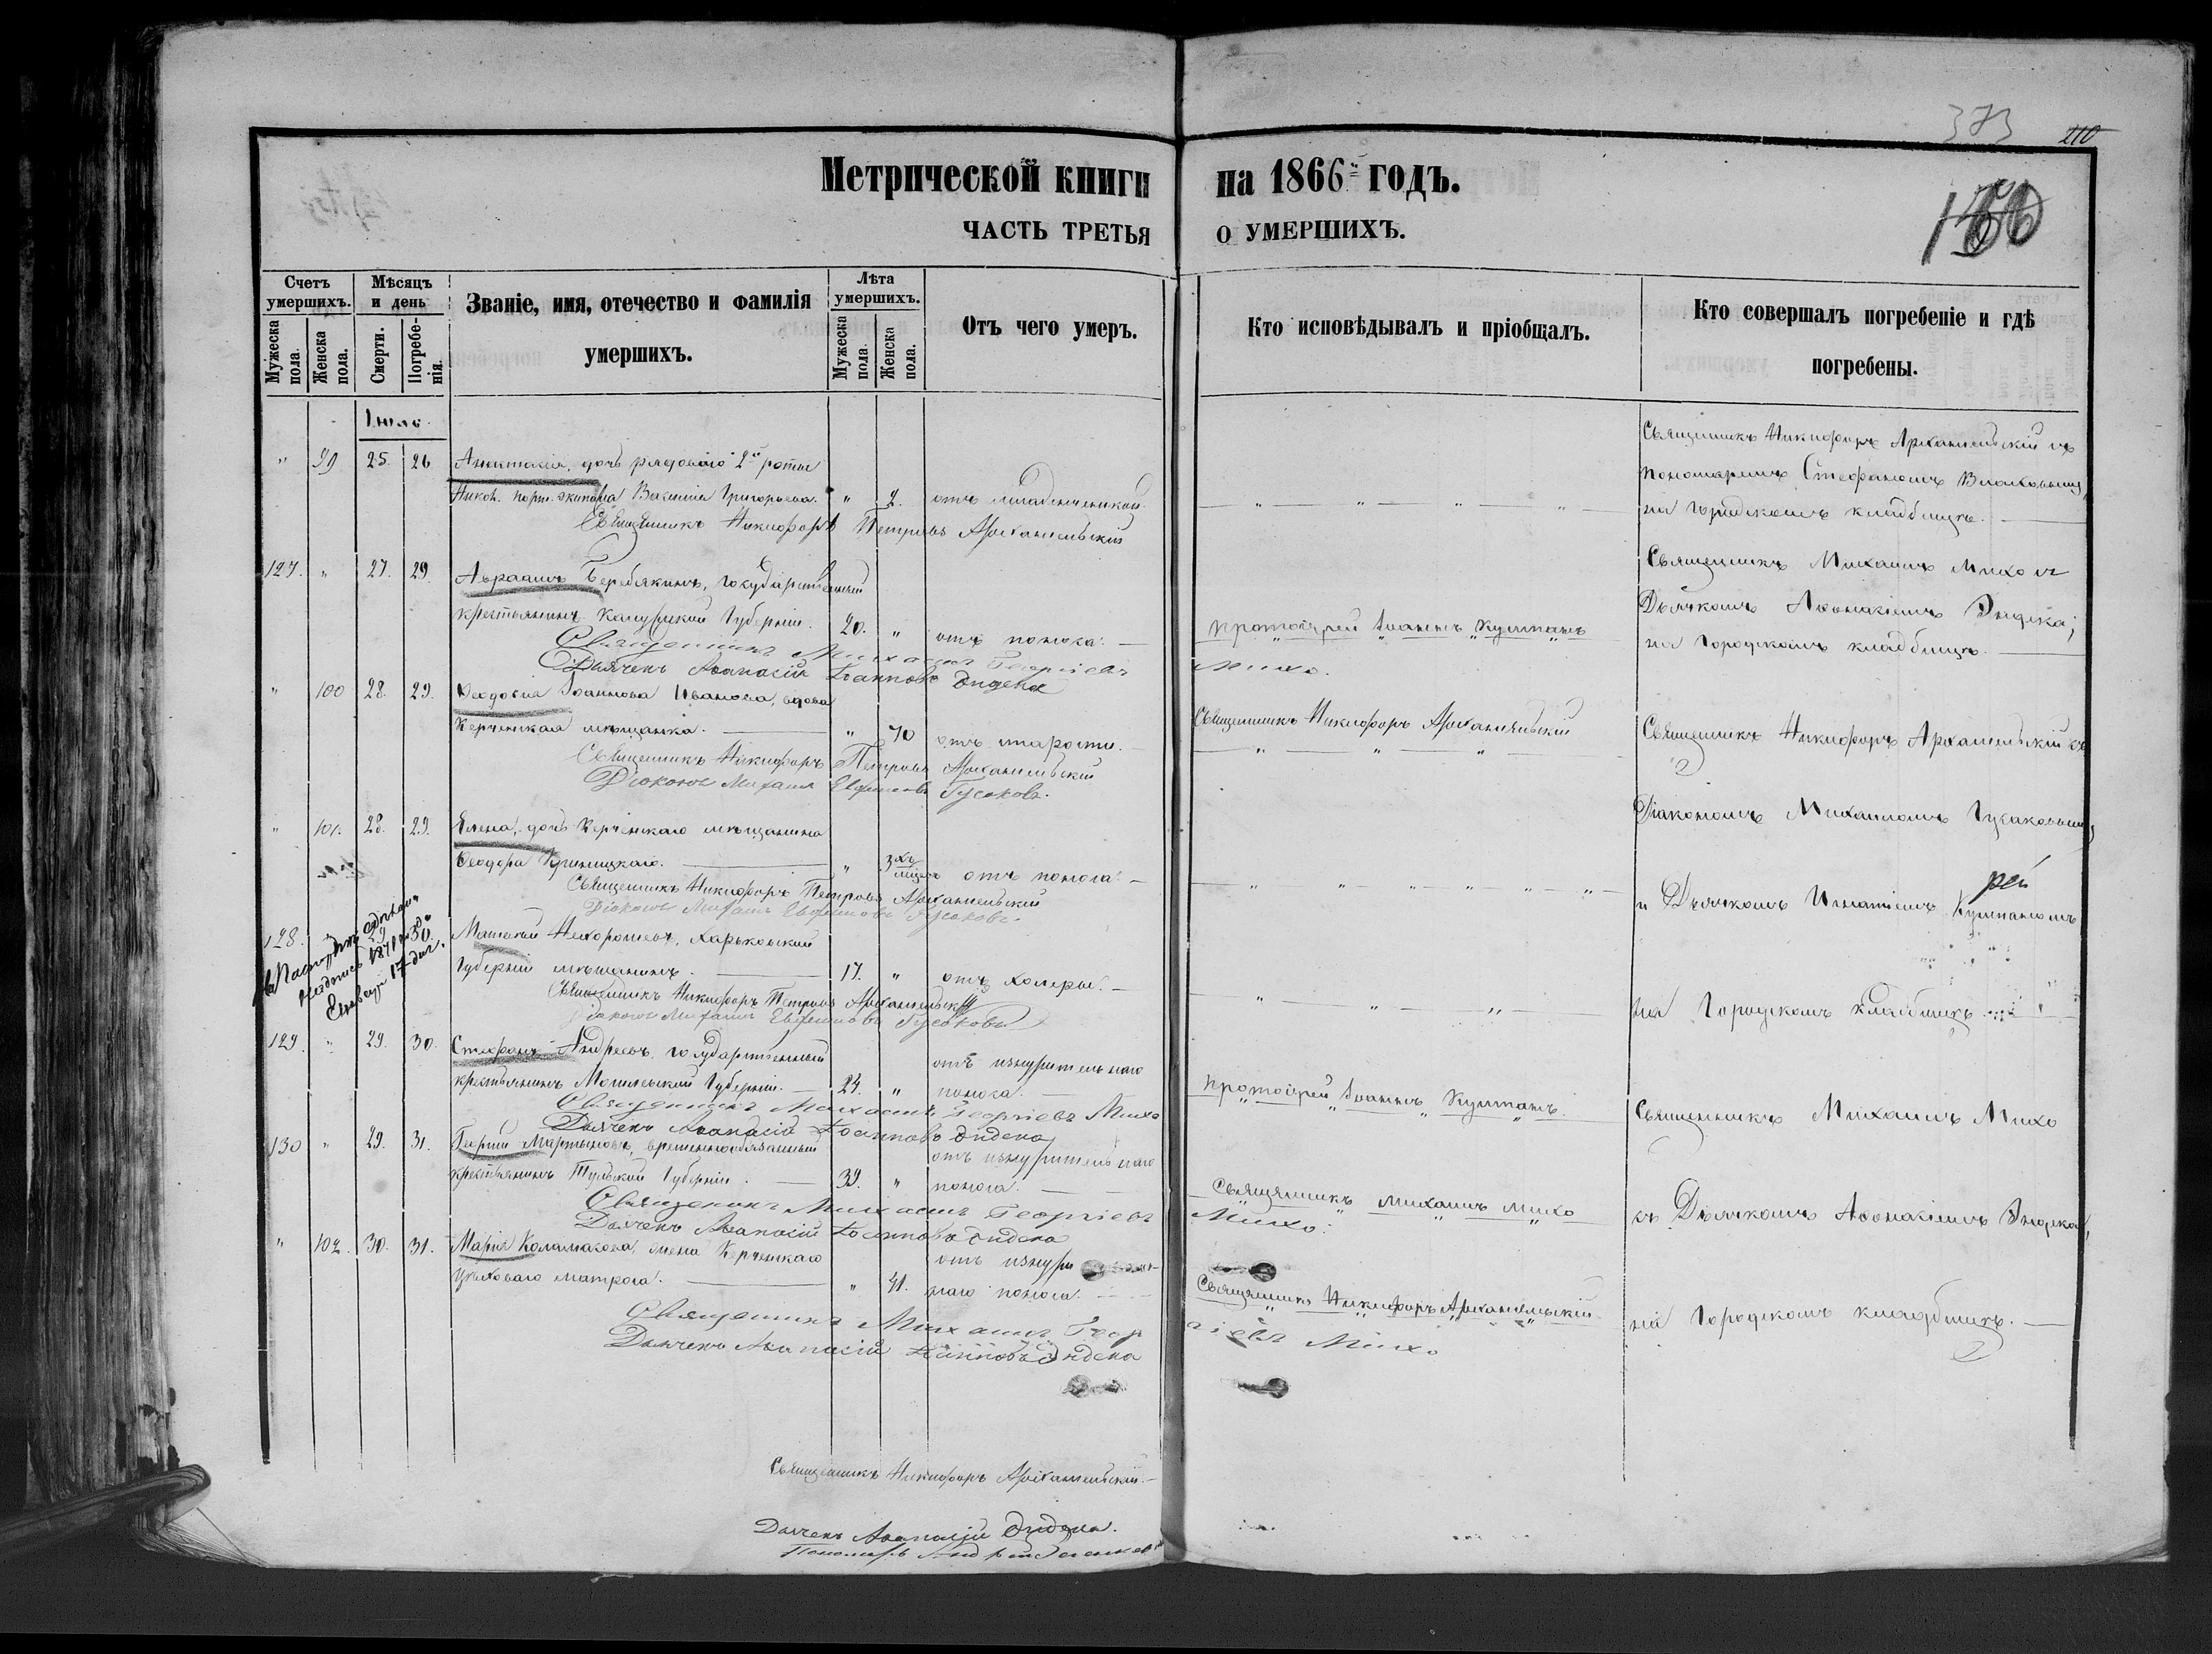 373 210
Метрической книги на 1866 годъ.
ЧАСТЬ ТРЕТЬЯ О УМЕРШИХЪ.
Счетъ умершихъ.
Мужеска пола.
Женска пола.
Мѣсяцъ и день
Смерти.
Погребенія.
Званіе, имя, отечество и фамилія умершихъ.
Лѣта умершихъ.
Мужеска пола.
Женска пола.
Отъ чего умеръ.
Кто исповѣдывалъ и пріобщалъ.
Кто совершалъ погребеніе и гдѣ погребены.
Іюль
" 99 25. 26 Анастасія, дочь рядоваго 2й роты
Василія Григорьева. " 2. отъ младенческой
Священникъ Никифоръ Петровъ Архангельскій
Священникъ Никифоръ Архангельскій съ
Пономаремъ Стефаномъ
на городскомъ кладбищѣ.
127. " 27. 29. Авраамъ Беребякинъ, государственный
крестьянинъ Калужской Губерніи. 20. " отъ поноса. Протоіерей Іоаннъ Кумпанъ
Священникъ Михаилъ Георгіевъ Михо.
Дьячекъ Аѳанасій Іоанновъ Дидена
Священникъ Михаилъ Михо съ
Дьячкомъ Аѳонасіемъ
на Городскомъ кладбищѣ.
" 100 28. 29. Ѳеодосія Іоаннова Иванова, вдова
Керченская мѣщанка. " 70 отъ старости. Священникъ Никифоръ Архангельскій
Священникъ Никифоръ Петровъ Архангельскій
Діаконъ Михаилъ Евфимовъ Гусаковъ.
Священникъ Никифоръ Архангельскій съ
Діакономъ Михаиломъ Гусаковымъ
" 101. 28. 29. Елена, дочь Керченскаго мѣщанина
Ѳеодора " 3хъ мѣсяц отъ поноса.
Священникъ Никифоръ Петровъ Архангельскій
Діаконъ Михаилъ Евфимовъ Гусаковъ.
и Дьячкомъ Игнатіемъ Кумпаномъ
128. " 29 30. Матѳей Нехорошевъ, Харьковской
Губерніи мѣщанинъ. 17. " отъ холеры.
Священникъ Никифоръ Петровъ Архангельскій
Діаконъ Михаилъ Евфимовъ Гусаковъ
на Городскомъ кладбищѣ
1871 года
17 дня.
129. " 29. 30. Стефанъ Андреевъ, государственный отъ изнурительнаго
крестьянинъ Могилевской Губерніи. 24. " поноса. Протоіерей Іоаннъ Кумпанъ.
Священникъ Михаилъ Георгіевъ Михо
Дьячекъ Аѳанасій Іоанновъ Дидена
Священникъ Михаилъ Михо
130 " 29. 31. Георгій Мартыновъ, временнообязанный отъ изнурительнаго
крестьянинъ Тульской Губерніи. 39. " поноса. Священникъ Михаилъ Михо
Священникъ Михаилъ Георгіевъ Михо.
Дьячекъ Аѳанасій Іоанновъ Дидена
съ Дьячкомъ Аѳонасіемъ
" 102. 30. 31. Марія Коламакова, жена Керченскаго отъ изнури
цеховаго матроса. " 41. наго поноса. Священникъ Никифоръ Архангельскій
Священникъ Михаилъ Георгіевъ Михо
Дьячекъ Аѳанасій Іоанновъ Дидена
на Городскомъ кладбищѣ.
Священникъ Никифоръ Архангельскій.
Дьячекъ Аѳанасій Дидена.
Пономарь